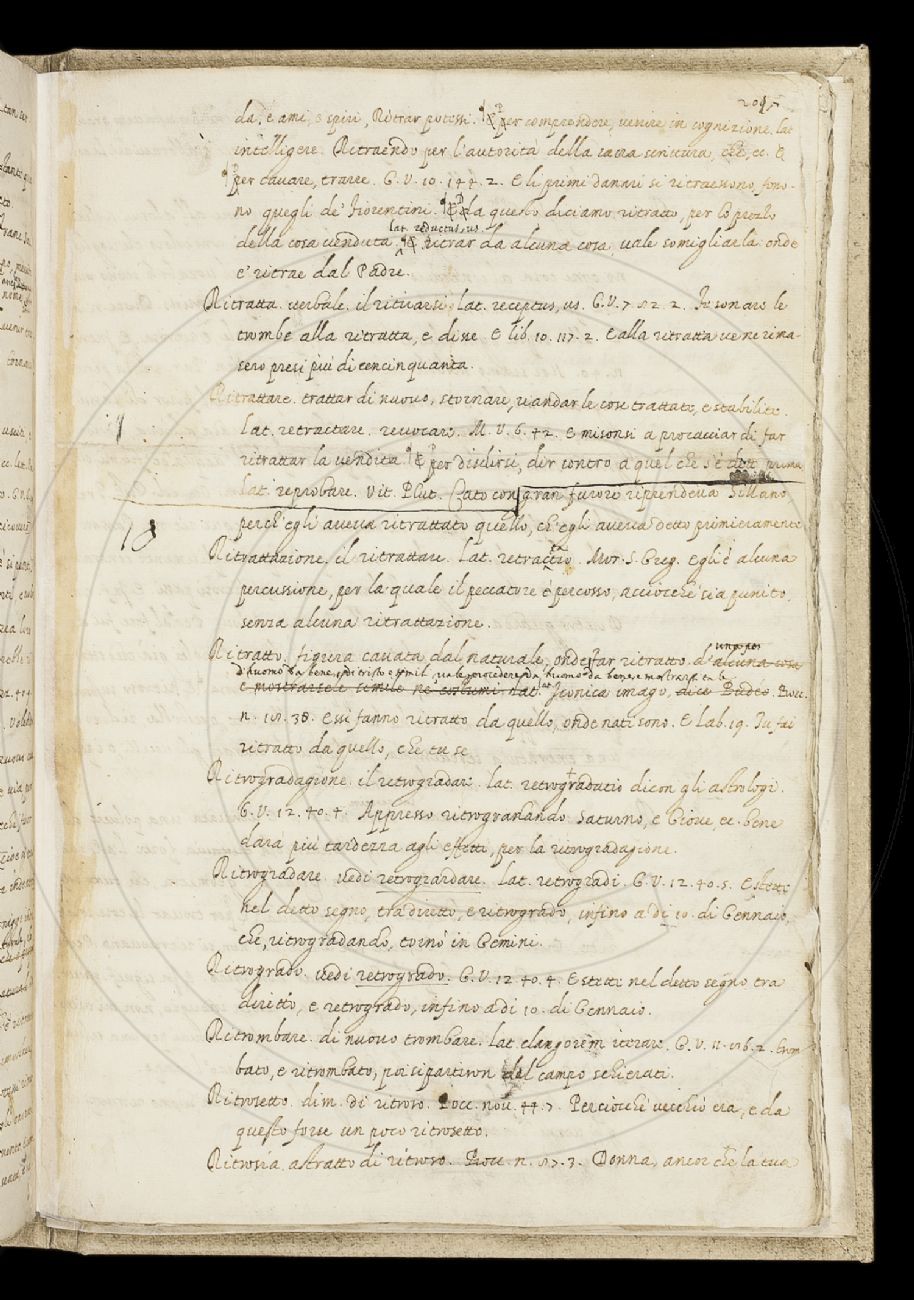 209
da, e ami, e spiri, Ritrar potessi. ¶ Per comprendere, venire in cognizione. lat.
intelligere. Ritraendo per l'autorità della sacra scrittura, che, ec. E
per cavare, trarre. G. V. 10. 144. 2. E li primi danari si ritraessono, fono-
no quegli de' Fiorentini. ¶ Da questo diciamo ritratto, per lo prezzo
lat. reductus, us.
della cosa venduta. ¶ E ritrar da alcuna cosa, vale somigliarla: onde
e' ritrae dal Padre.
Ritratta. verbale. il ritirarsi. lat. receptus, us. G. V. 7. 82. 2. Fu sonare le
trombe alla ritratta, e disse. E lib. 10. 117. 2. E alla ritratta ve ne rima-
sero presi più di cencinquanta.
Ritrattare. trattar di nuovo, stornare, mandar le cose trattate, e stabilite.
lat. retractare. revocare. M. V. 6. 42. E misonsi a procacciar di far
ritrattar la vendita. ¶ E per disdirsi, dir contro a quel che s'è detto prima
lat. reprobare. Vit. Plut. Cato con gran furore riprendeva Sillano,
perch'egli aveva ritrattato quello, ch'egli aveva detto primieramente
18
Ritrattazione. il ritrattare. lat. retractio. Mor. S. Greg. Egli è alcuna
percussione, per la quale il peccatore è percosso, acciocchè sia punito,
senza alcuna ritrattazione.
Ritratto. figura cavata dal naturale, onde far ritratto d'alcuna cosa
d'huomo da bene, o di tristo e simil, vale procedere da huomo da bene, e mostrarsi
e mostrarsele simile ne' costumi. lat. Iconica imago, dice Budeo. Bocc.
n. 101. 38. Essi fanno ritratto da quello, onde nati sono. E Lab. 19. Tu fai
ritratto da quello, che tu se.
Ritrogradagione. il retrogradare. lat. retrogradatio dicon gli astrologi.
G. V. 12. 40. 4. Appresso ritrogradando Saturno, e Giove, ec. bene
darà più tardezza agli effetti, per la ritrogradagione.
Ritrogradare. vedi retrogradare. lat. retrogradi. G. V. 12. 40. 5. E stette
nel detto segno, tra diritto, e ritrogrado, infino a dì 10. di Gennaio,
che, ritrogradando, tornò in Gemini.
Ritrogrado. vedi retrogrado. G. V. 12. 40. 4. E stette nel detto segno tra
diritto, e retrogrado, infino a dì 10. di Gennaio.
Ritrombare. di nuovo trombare. lat. clangorem iterare. G. V. 11. 136. 2. Trom-
bato, e ritrombato, poi si partiron dal campo schierati.
Ritrosetto. dim. di ritroso. Bocc. nov. 44. 7. Perciocchè vecchio era, e da
questo forse un poco ritrosetto.
Ritrosia. astratto di ritroso. Bocc. n. 87. 3. Donna, ancor che la tua